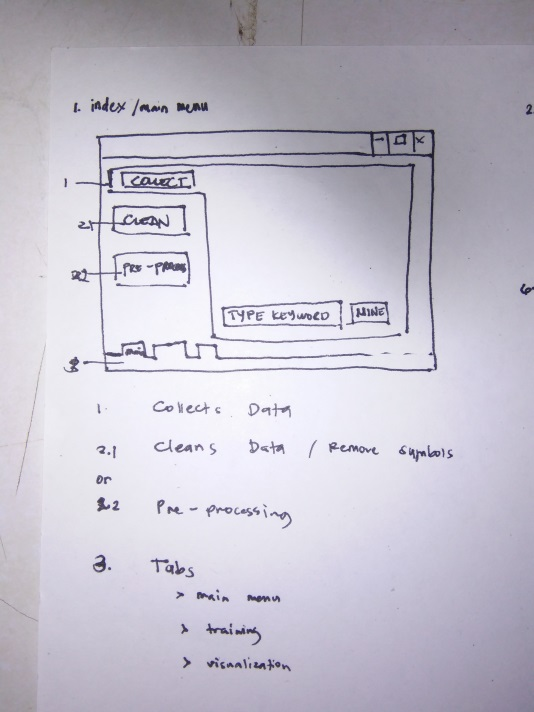 1. index/main menu
- □ x
1 COLLECT
2.1 CLEAN
2.2 PRE-PROCESS
TYPE KEYWORD MINE
main
3
1. Collects Data
2.1 Cleans Data / Remove symbols
or
2.2 Pre-processing
3. Tabs
> main menu
> training
> visualization
2.